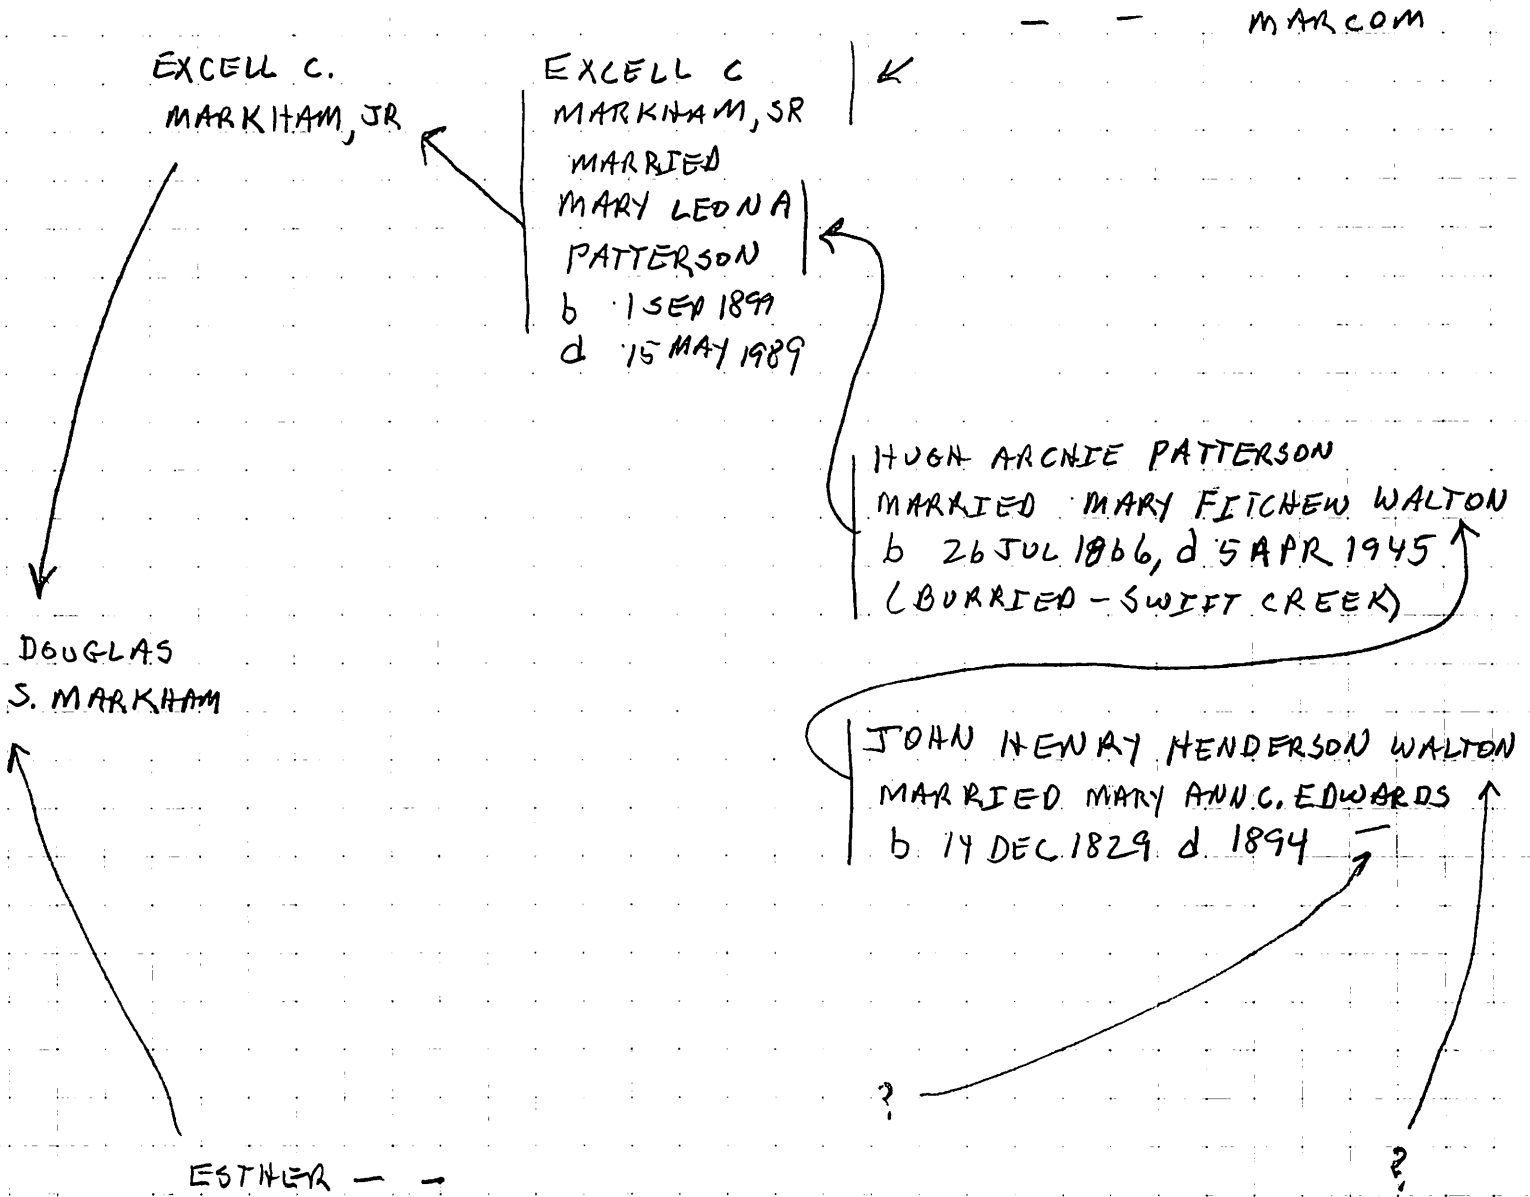 — — MARCOM
EXCELL C.
MARKHAM, JR
EXCELL C
MARKHAM, SR
MARRIED
MARY LEONA
PATTERSON
b 1 SEP 1899
d 15 MAY 1989
HUGH ARCHIE PATTERSON
MARRIED MARY FITCHEW WALTON
b 26 JUL 1866, d 5 APR 1945
(BURRIED - SWIFT CREEK)
DOUGLAS
S. MARKHAM
JOHN HENRY HENDERSON WALTON
MARRIED MARY ANN C. EDWARDS
b 14 DEC 1829 d 1894 —
?
?
ESTHER — —